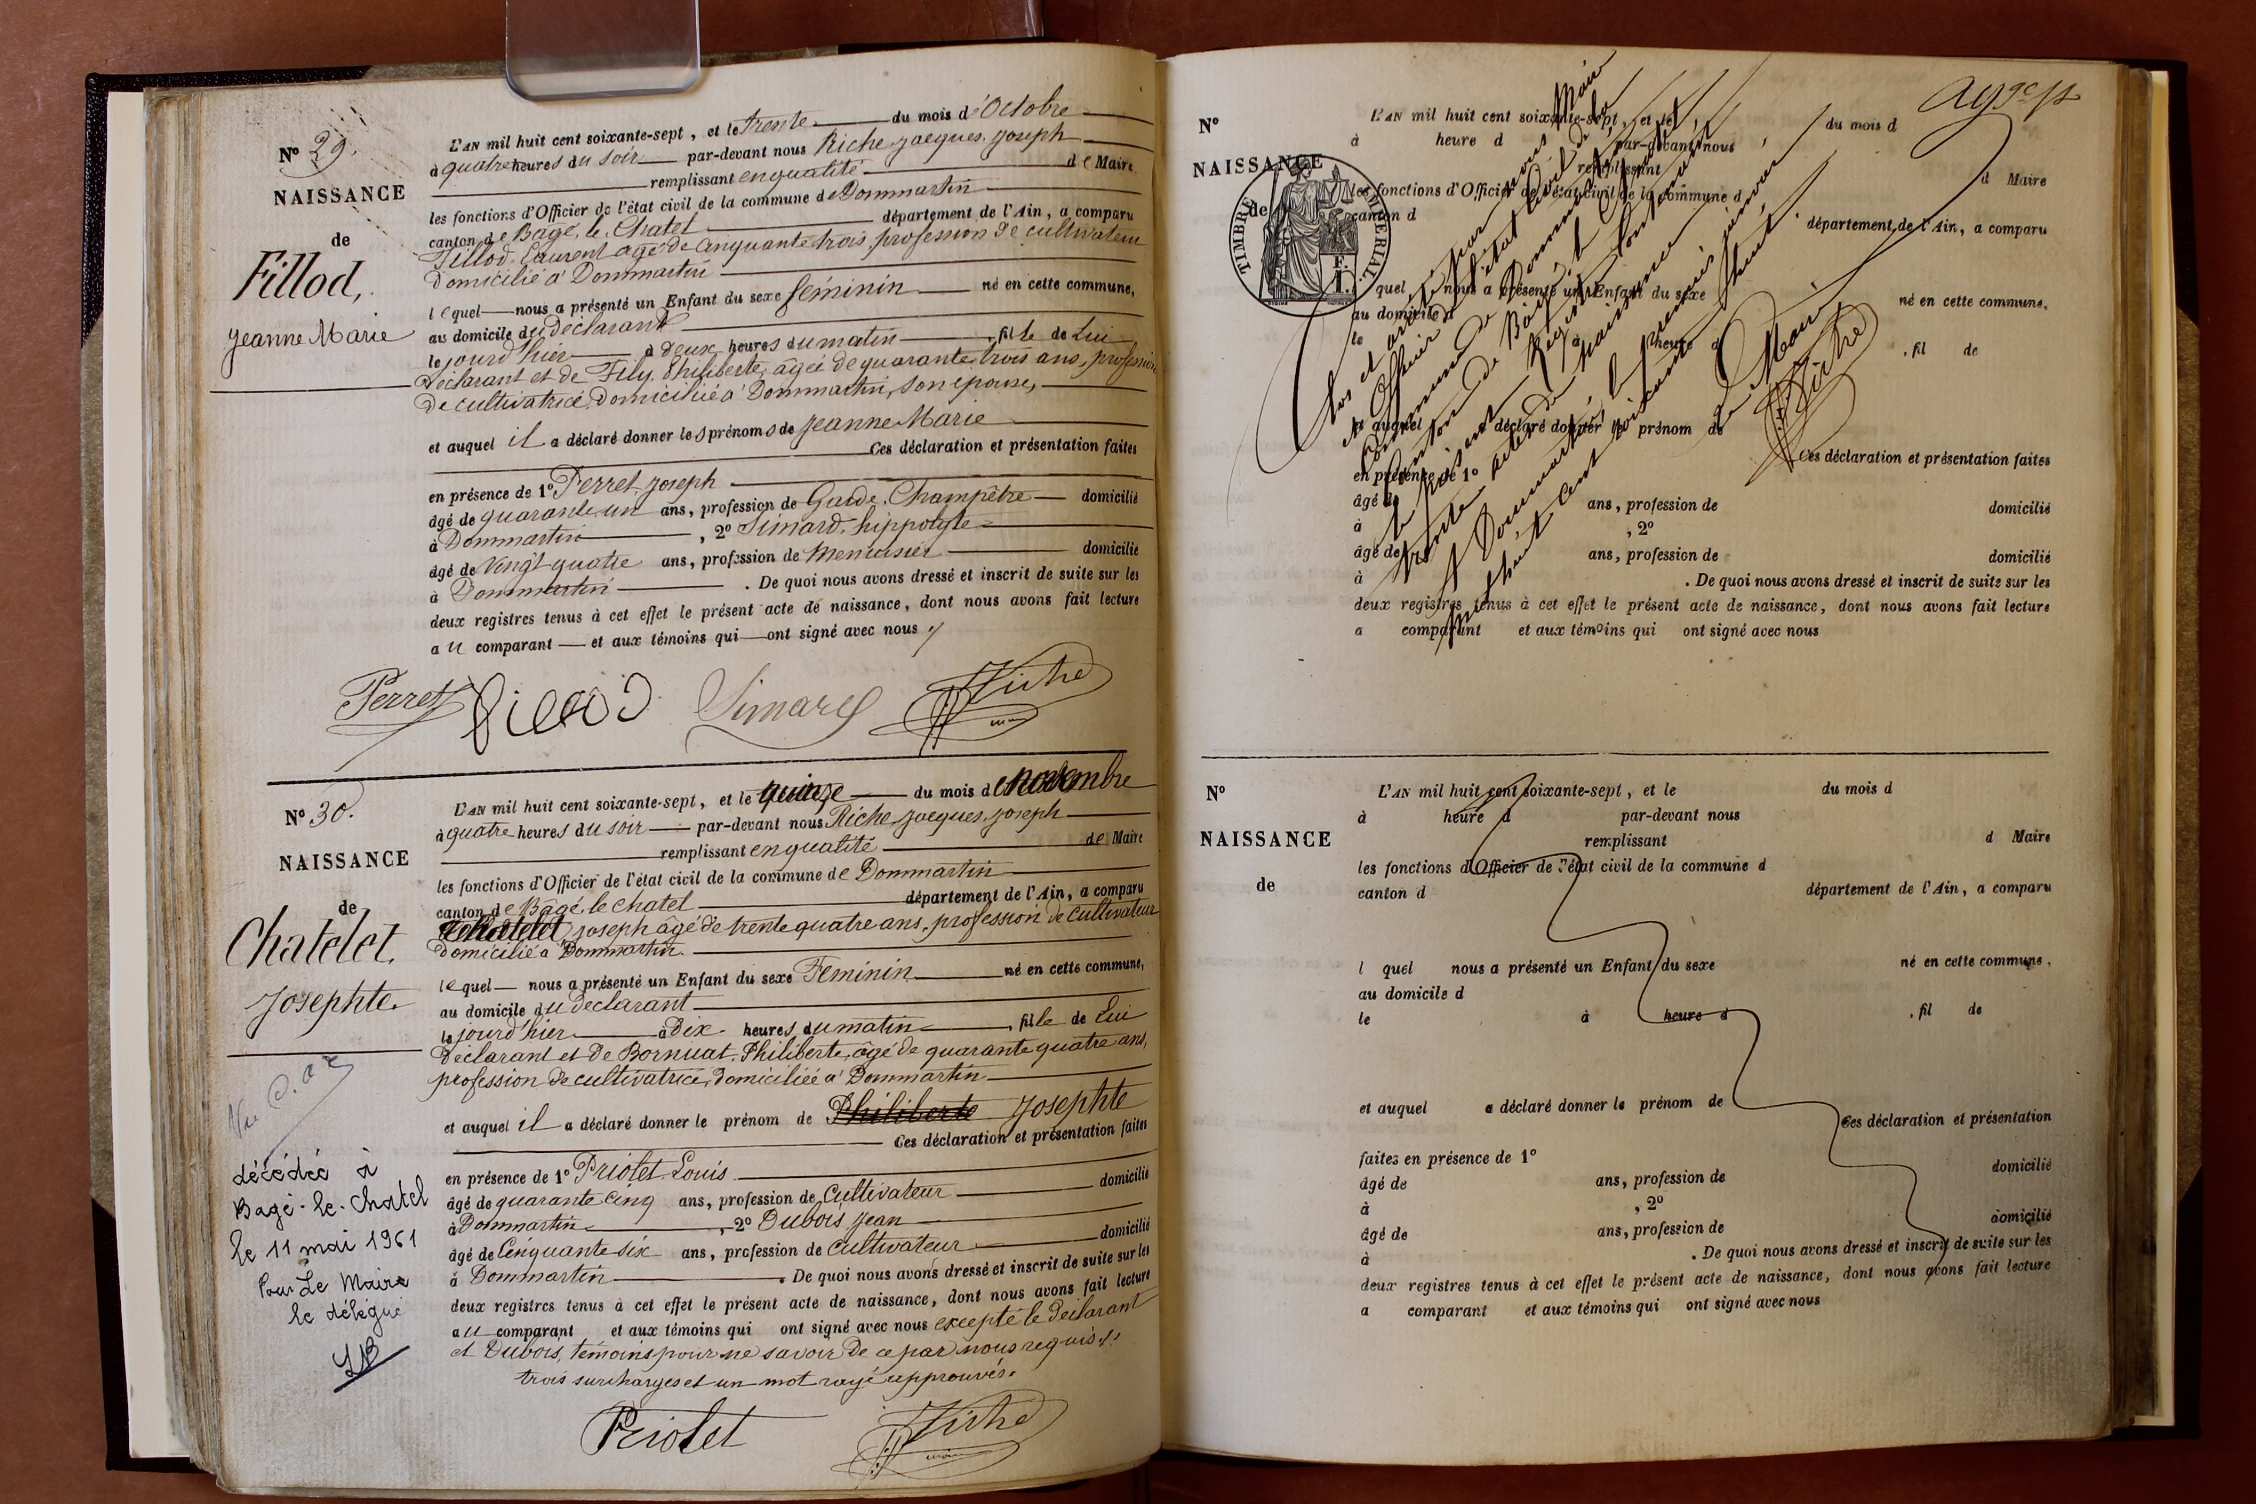 N° 29.
NAISSANCE
de
Fillod,
Jeanne Marie
L'AN mil huit cent soixante-sept, et le trente du mois d'Octobre
à quatre heures du soir par-devant nous Riche jacques joseph
remplissant en qualité de Maire
les fonctions d'Officier de l'état civil de la commune de Dommartin
canton de Bagé le Chatel département de l'Ain, a comparu
Fillod Laurent agé de Cinquante trois profession de cultivateur
Domicilié à Dommartin
lequel nous a présenté un Enfant du sexe féminin né en cette commune,
au domicile du déclarant
le jourd'hier à Deux heures du matin, fille de Lui
Déclarant et de Fily Philiberte, âgée de quarante trois ans, profession
De cultivatrice, Domiciliée à Dommartin, son épouse,
et auquel il a déclaré donner les prénoms de jeanne Marie
Ces déclaration et présentation faites
en présence de 1° Perret joseph
âgé de quarante un ans, profession de Garde Champêtre domicilié
à Dommartin, 2° Simard hippolyte
âgé de Vingt quatre ans, profession de Menuisier domicilié
à Dommartin. De quoi nous avons dressé et inscrit de suite sur les
deux registres tenus à cet effet le présent acte de naissance, dont nous avons fait lecture
au comparant et aux témoins qui ont signé avec nous
Perret Simard Riche
N° 30.
NAISSANCE
de
Chatelet.
Josephte.
L'AN mil huit cent soixante-sept, et le quinze du mois de novembre
à quatre heures du soir par-devant nous Riche jacques joseph
remplissant en qualité de Maire
les fonctions d'Officier de l'état civil de la commune de Dommartin
canton de Bâgé le chatel département de l'Ain, a comparu
Chatelet joseph âgé de trente quatre ans, profession de cultivateur
domicilié à Dommartin
lequel nous a présenté un Enfant du sexe Féminin né en cette commune,
au domicile du déclarant
le jourd'hier à Dix heures du matin, fille de Lui
Déclarant et de Bornuat Philiberte, âgé de quarante quatre ans,
profession de cultivatrice, domiciliée à Dommartin
et auquel il a déclaré donner le prénom de Philiberte Josephte
Ces déclaration et présentation faites
en présence de 1° Priolet Louis
âgé de quarante cinq ans, profession de Cultivateur domicilié
à Dommartin, 2° Dubois jean
âgé de Cinquante six ans, profession de Cultivateur domicilié
à Dommartin. De quoi nous avons dressé et inscrit de suite sur les
deux registres tenus à cet effet le présent acte de naissance, dont nous avons fait lecture
au comparant et aux témoins qui ont signé avec nous excepté le déclarant
et Dubois, témoins pour ne savoir De ce par nous requis
trois surcharges et un mot rayé approuvés.
Priolet Riche
décédée à
Bagé-le-Chatel
le 11 mai 1961
Pour Le Maire
le délégué
N°
NAISSANCE
de
TIMBRE IMPERIAL
L'AN mil huit cent soixante-sept, et le du mois d
à heure d par-devant nous
remplissant d Maire
les fonctions d'Officier de l'état civil de la commune d
canton d département de l'Ain, a comparu
l quel nous a présenté un Enfant du sexe né en cette commune,
au domicile d
le à heure d, fil de
et auquel a déclaré donner le prénom de
Ces déclaration et présentation faites
en présence de 1°
âgé de ans, profession de domicilié
à, 2°
âgé de ans, profession de domicilié
à. De quoi nous avons dressé et inscrit de suite sur les
deux registres tenus à cet effet le présent acte de naissance, dont nous avons fait lecture
a comparant et aux témoins qui ont signé avec nous
Clos et arrêté par nous Maire
et Officier de l'état civil de la
Commune de Dommartin
Canton de Bâgé le Chatel,
le présent Registre contenant
trente actes de naissance,
à Dommartin le premier janvier
mil huit cent soixante huit.
Le Maire
Riche
N°
NAISSANCE
de
L'AN mil huit cent soixante-sept, et le du mois d
à heure d par-devant nous
remplissant d Maire
les fonctions d'Officier de l'état civil de la commune d
canton d département de l'Ain, a comparu
l quel nous a présenté un Enfant du sexe né en cette commune,
au domicile d
le à heure d, fil de
et auquel a déclaré donner le prénom de
Ces déclaration et présentation
faites en présence de 1°
âgé de ans, profession de domicilié
à, 2°
âgé de ans, profession de domicilié
à. De quoi nous avons dressé et inscrit de suite sur les
deux registres tenus à cet effet le présent acte de naissance, dont nous avons fait lecture
a comparant et aux témoins qui ont signé avec nous